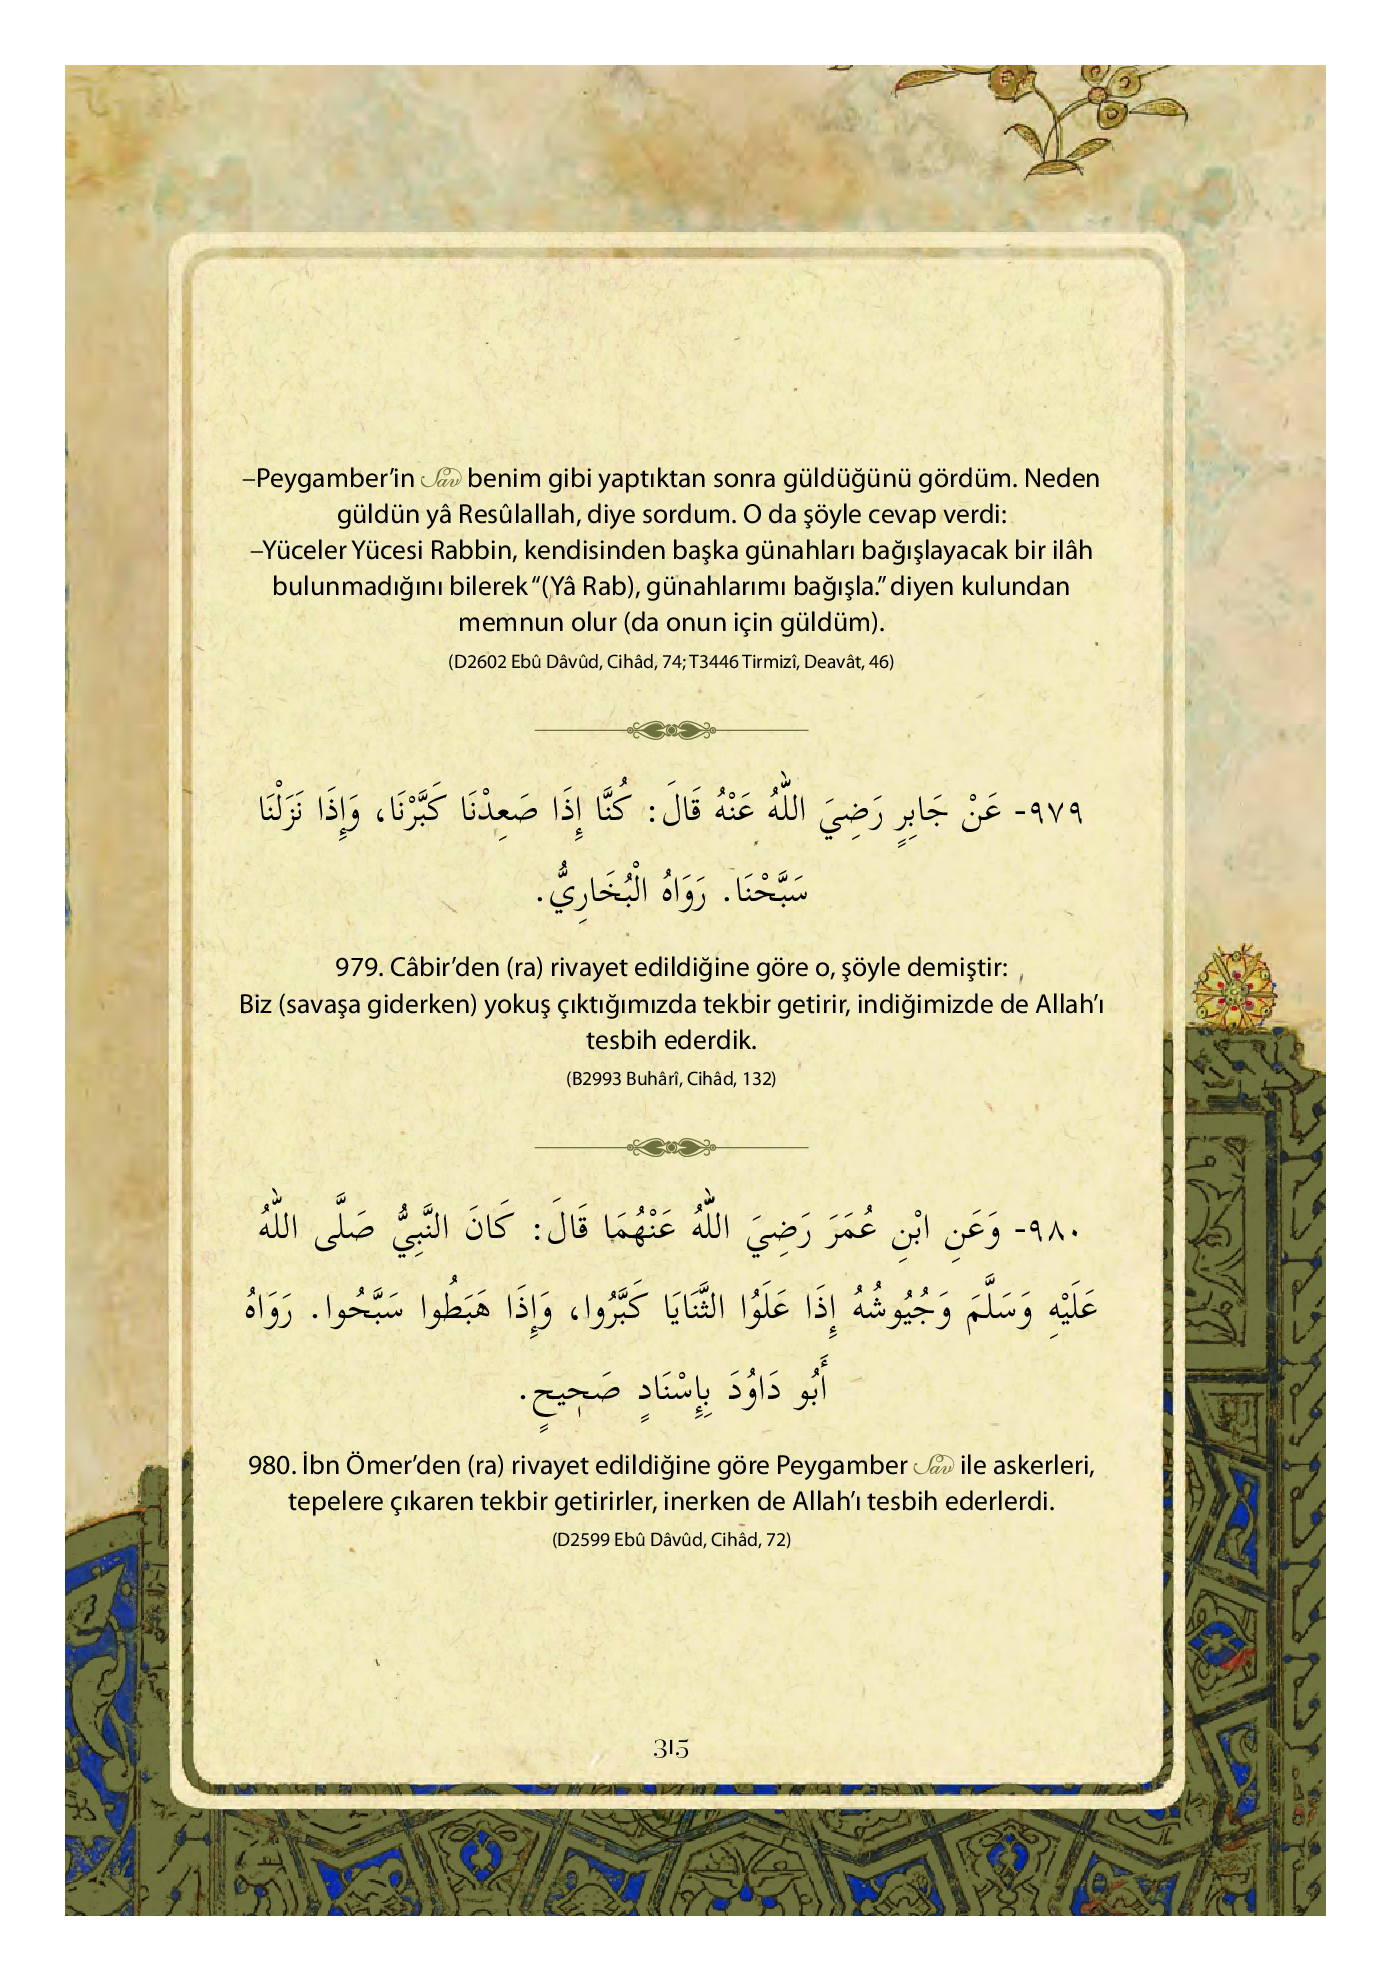 –Peygamber’in Sav benim gibi yaptıktan sonra güldüğünü gördüm. Neden
güldün yâ Resûlallah, diye sordum. O da şöyle cevap verdi:
–Yüceler Yücesi Rabbin, kendisinden başka günahları bağışlayacak bir ilâh
bulunmadığını bilerek “(Yâ Rab), günahlarımı bağışla.” diyen kulundan
memnun olur (da onun için güldüm).
(D2602 Ebû Dâvûd, Cihâd, 74; T3446 Tirmizî, Deavât, 46)
٩٧٩- عَنْ جَابِرٍ رَضِيَ اللّٰهُ عَنْهُ قَالَ: كُنَّا إِذَا صَعِدْنَا كَبَّرْنَا، وَإِذَا نَزَلْنَا
سَبَّحْنَا. رَوَاهُ الْبُخَارِيُّ.
979. Câbir’den (ra) rivayet edildiğine göre o, şöyle demiştir:
Biz (savaşa giderken) yokuş çıktığımızda tekbir getirir, indiğimizde de Allah’ı
tesbih ederdik.
(B2993 Buhârî, Cihâd, 132)
٩٨٠- وَعَنِ ابْنِ عُمَرَ رَضِيَ اللّٰهُ عَنْهُمَا قَالَ: كَانَ النَّبِيُّ صَلَّى اللّٰهُ
عَلَيْهِ وَسَلَّمَ وَجُيُوشُهُ إِذَا عَلَوُا الثَّنَايَا كَبَّرُوا، وَإِذَا هَبَطُوا سَبَّحُوا. رَوَاهُ
أَبُو دَاوُدَ بِإِسْنَادٍ صَحِيحٍ.
980. İbn Ömer’den (ra) rivayet edildiğine göre Peygamber Sav ile askerleri,
tepelere çıkaren tekbir getirirler, inerken de Allah’ı tesbih ederlerdi.
(D2599 Ebû Dâvûd, Cihâd, 72)
315